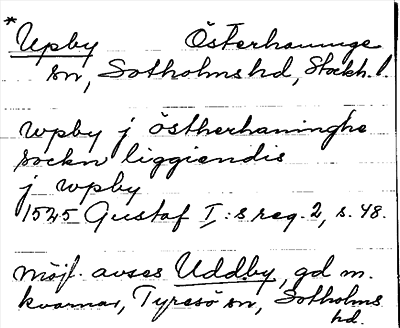 * Upby Österhaninge
sn, Sotholms hd, Stockh. l.
wpby j östherhaninghe
sockn liggiendis
j wpby
1525 Gustaf I:s reg. 2, s. 48.
möjl. avses Uddby, gd m.
kvarnar, Tyresö sn, Sotholms
hd.